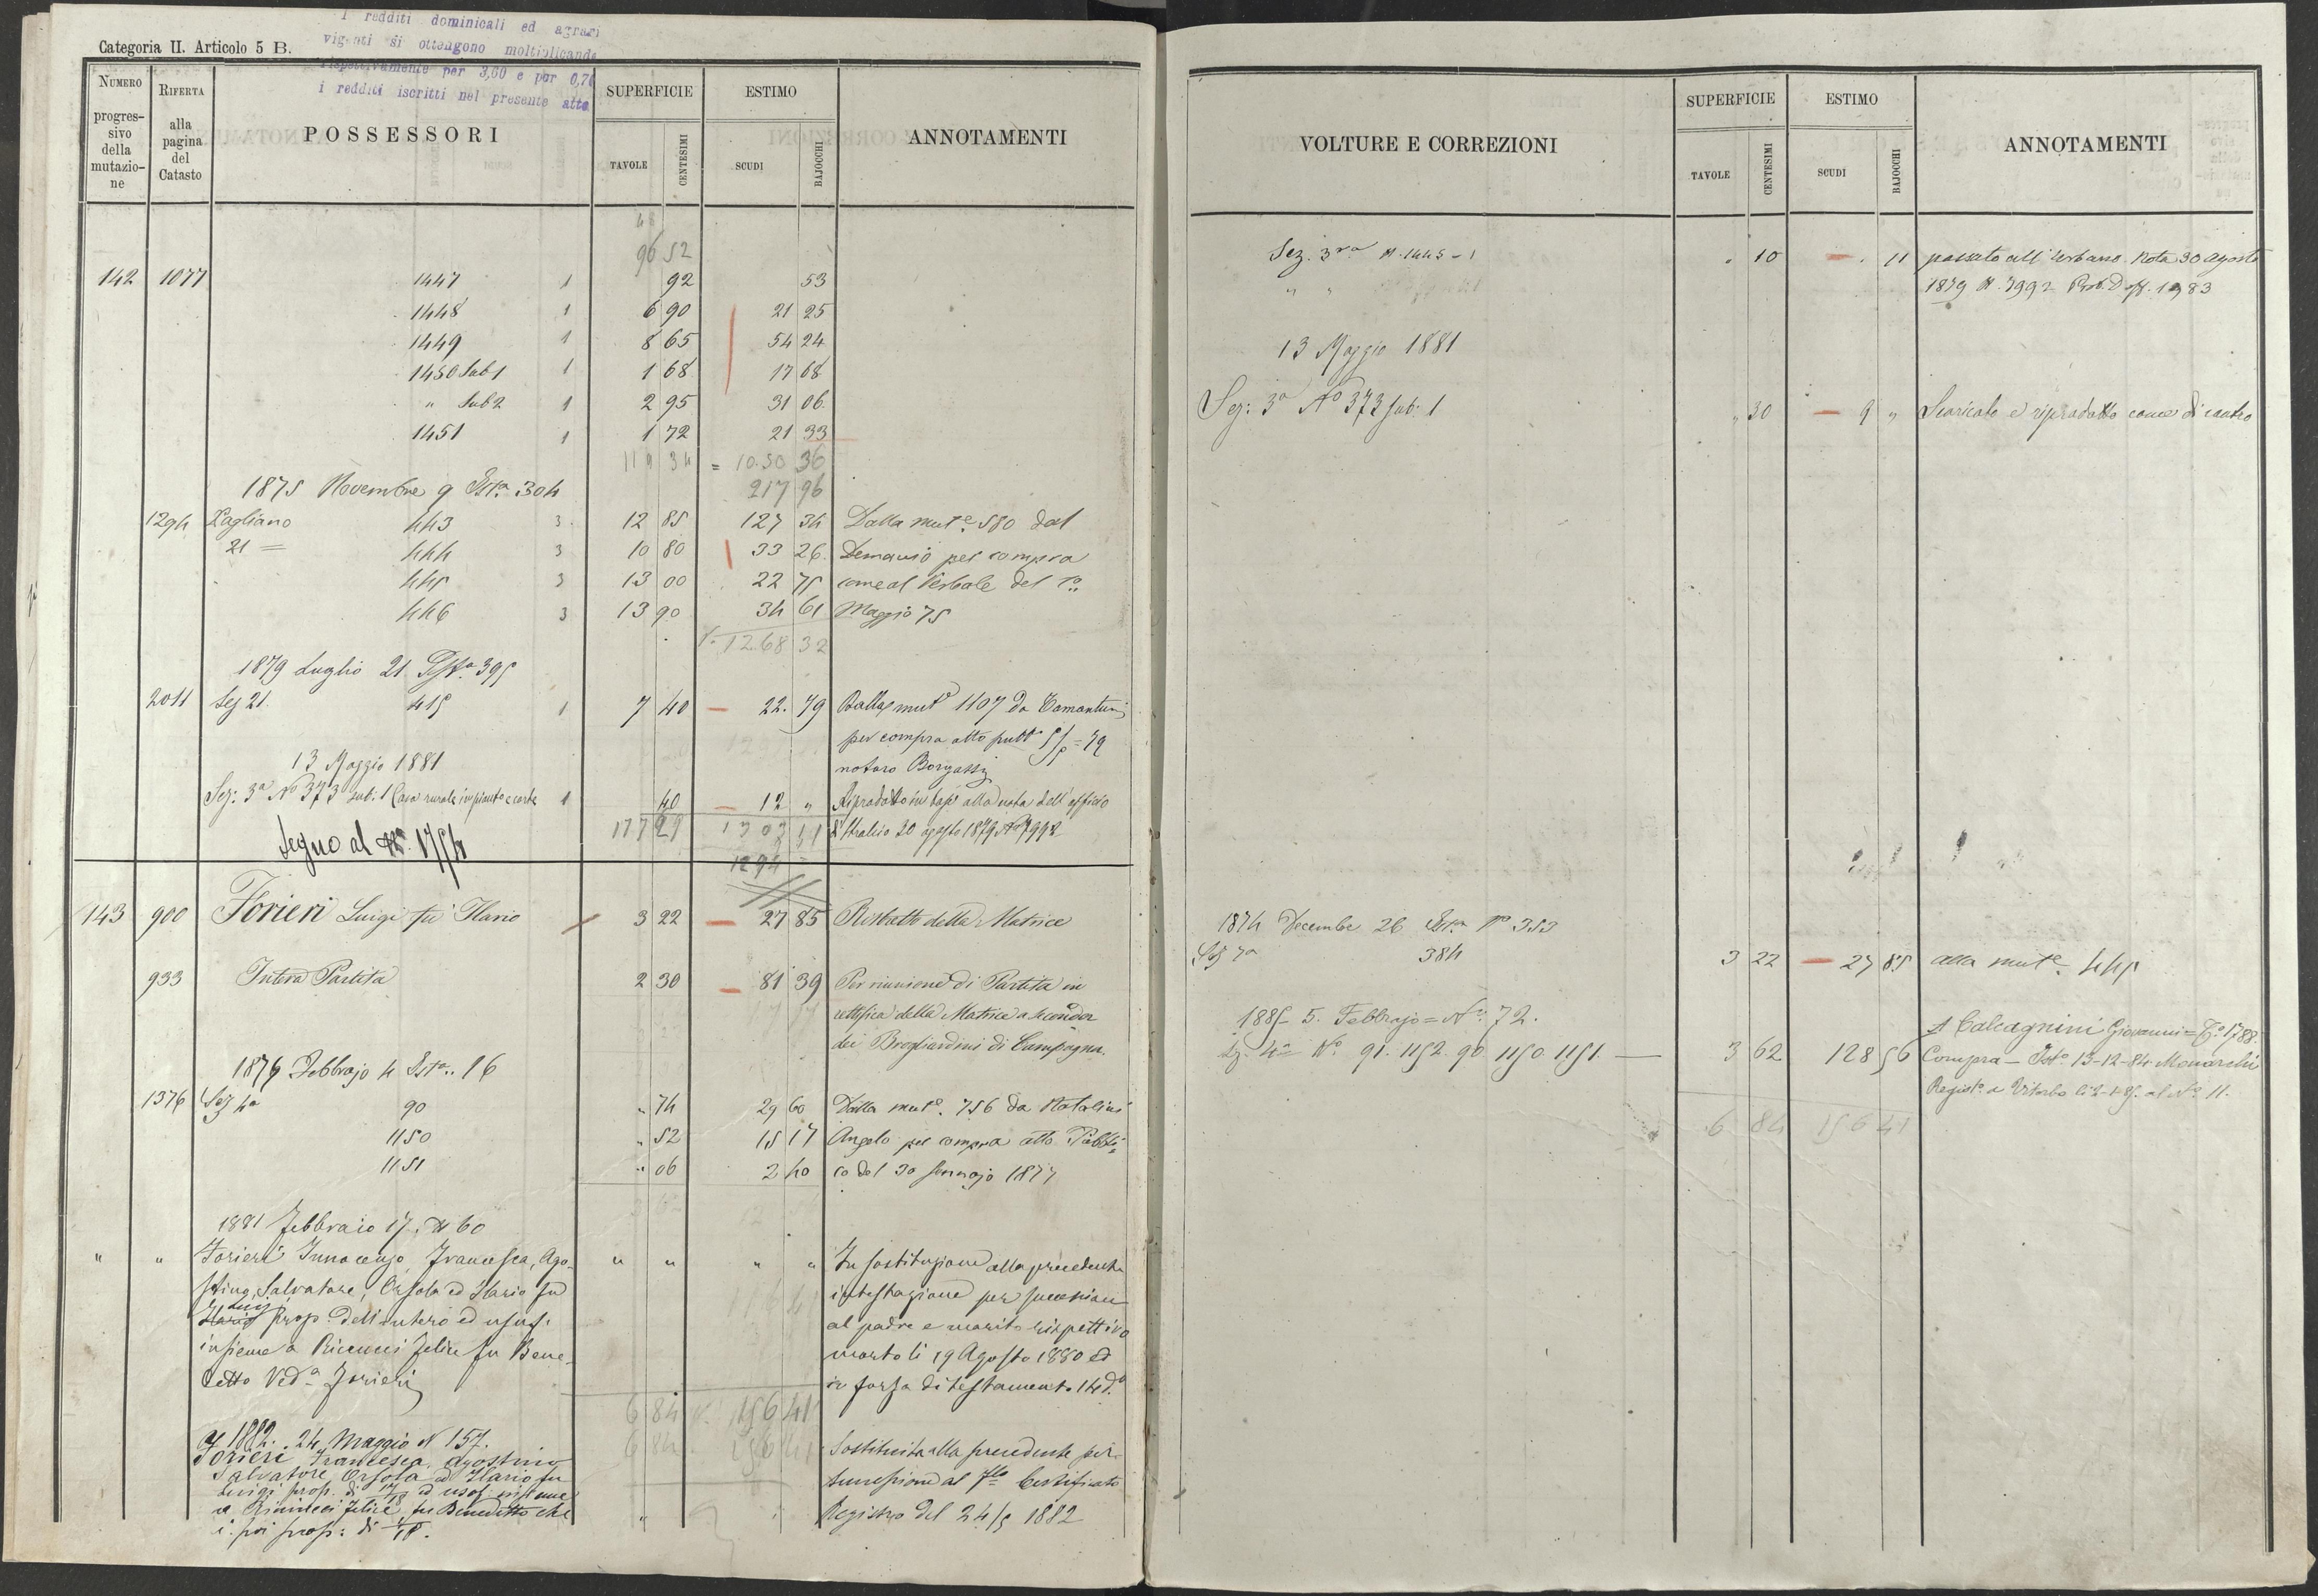 Categoria II. Articolo 5 B.
I redditi dominicali ed agrari
vigenti si ottengono moltiplicando
rispettivamente per 3,60 e per 0,70
i redditi iscritti nel presente atto
NUMERO progressivo della mutazione
RIFERTA alla pagina del Catasto
POSSESSORI
SUPERFICIE
TAVOLE
CENTESIMI
ESTIMO
SCUDI
BAJOCCHI
ANNOTAMENTI
48
96 52
142 1077 1447 1 92 53
1448 1 6 90 21 25
1449 1 8 65 54 24
1450 Sub 1 1 1 68 17 68
" Sub 2 1 2 95 31 06
1451 1 1 72 21 33
119 34 = 10.50 36
1875 Novembre 9 Ista 304 217 96
1294 Pagliano 443 3 12 85 127 34 Dalla mute 580 dal
21 = 444 3 10 80 33 26 Demanio per compra
445 3 13 00 22 75 come al Verbale del 1o
446 3 13 90 34 61 Maggio 75
12.68 32
1879 Luglio 21 Ista 395
2011 Sez 21. 415 1 7 40 22. 79 Dalla mute 1107 Da
per compra atto pubb
13 Maggio 1881
notaro
Sez: 3a No 373 sub: 1 Casa rurale 1 40 12 " Riprodotto in base alla nota dell'officio
177 29 1303 11 30 agosto 1879 No 7992
Segno al 1754
1294
143 900 Forieri Luigi fu Ilario 3 22 27 85 Ristratto della Matrice
933 Intera Partita 2 30 81 39 Per riunione di Partita in
rettifica della Matrice a seconda
dei Brogliardini di Campagna.
1877 Febbrajo 4 Ista. 16
1376 Sez 4a 90 " 74 29 60 Dalla mute. 756 da Natalini
1150 " 52 15 17 Angelo per compra atto Pubbli=
1151 " 06 2 40 co del 30 Gennajo 1877
3 62
1881 Febbraio 17. N 60
" " Forieri Innocenzo, Francesca, Ago- " " " " In sostituzione alla precedente
stino, Salvatore, Orsola ed Ilario fu intestazione per successione
Luigi
Ilario prop. dell'intero ed usuf. al padre e marito rispettivo
insieme a Riccucci Felice fu Bene- morto li 19 Agosto 1880 ed
detto Veda Forieri in forza di testamento
6 84 156 41
1882. 24 Maggio N 157. 6 84 156 41 Sostituita alla precedente per
Forieri Francesca, Agostino
Salvatore, Orsola ed Ilario fu successione al Certificato
Luigi prop. di 17/18 ed usuf. insieme
a Felice fu Benedetto che Registro del 24/5 1882
è poi prop: di 1/18.
VOLTURE E CORREZIONI
SUPERFICIE
TAVOLE
CENTESIMI
ESTIMO
SCUDI
BAJOCCHI
ANNOTAMENTI
Sez. 3a N. 1445 - 1 . 10 . 11 passato all'Urbano. Nota 30 agosto
" " 1879 N. 7992 1983
13 Maggio 1881
Sez: 3a No 373 sub: 1 " 30 9 " Scaricato e riprodotto come di contro
1874 Decembre 26 Ista No 353
Sez 7a 384 3 22 27 85 alla mute. 445
1885 5. Febbrajo = No. 72. A Calcagnini Giovanni = 1788.
Sez. 4a No. 91. 1152. 90. 1150. 1151. 3 62 128 56 Compra - 13-12-84
Registo. a Viterbo al No. 11.
6 84 156 41